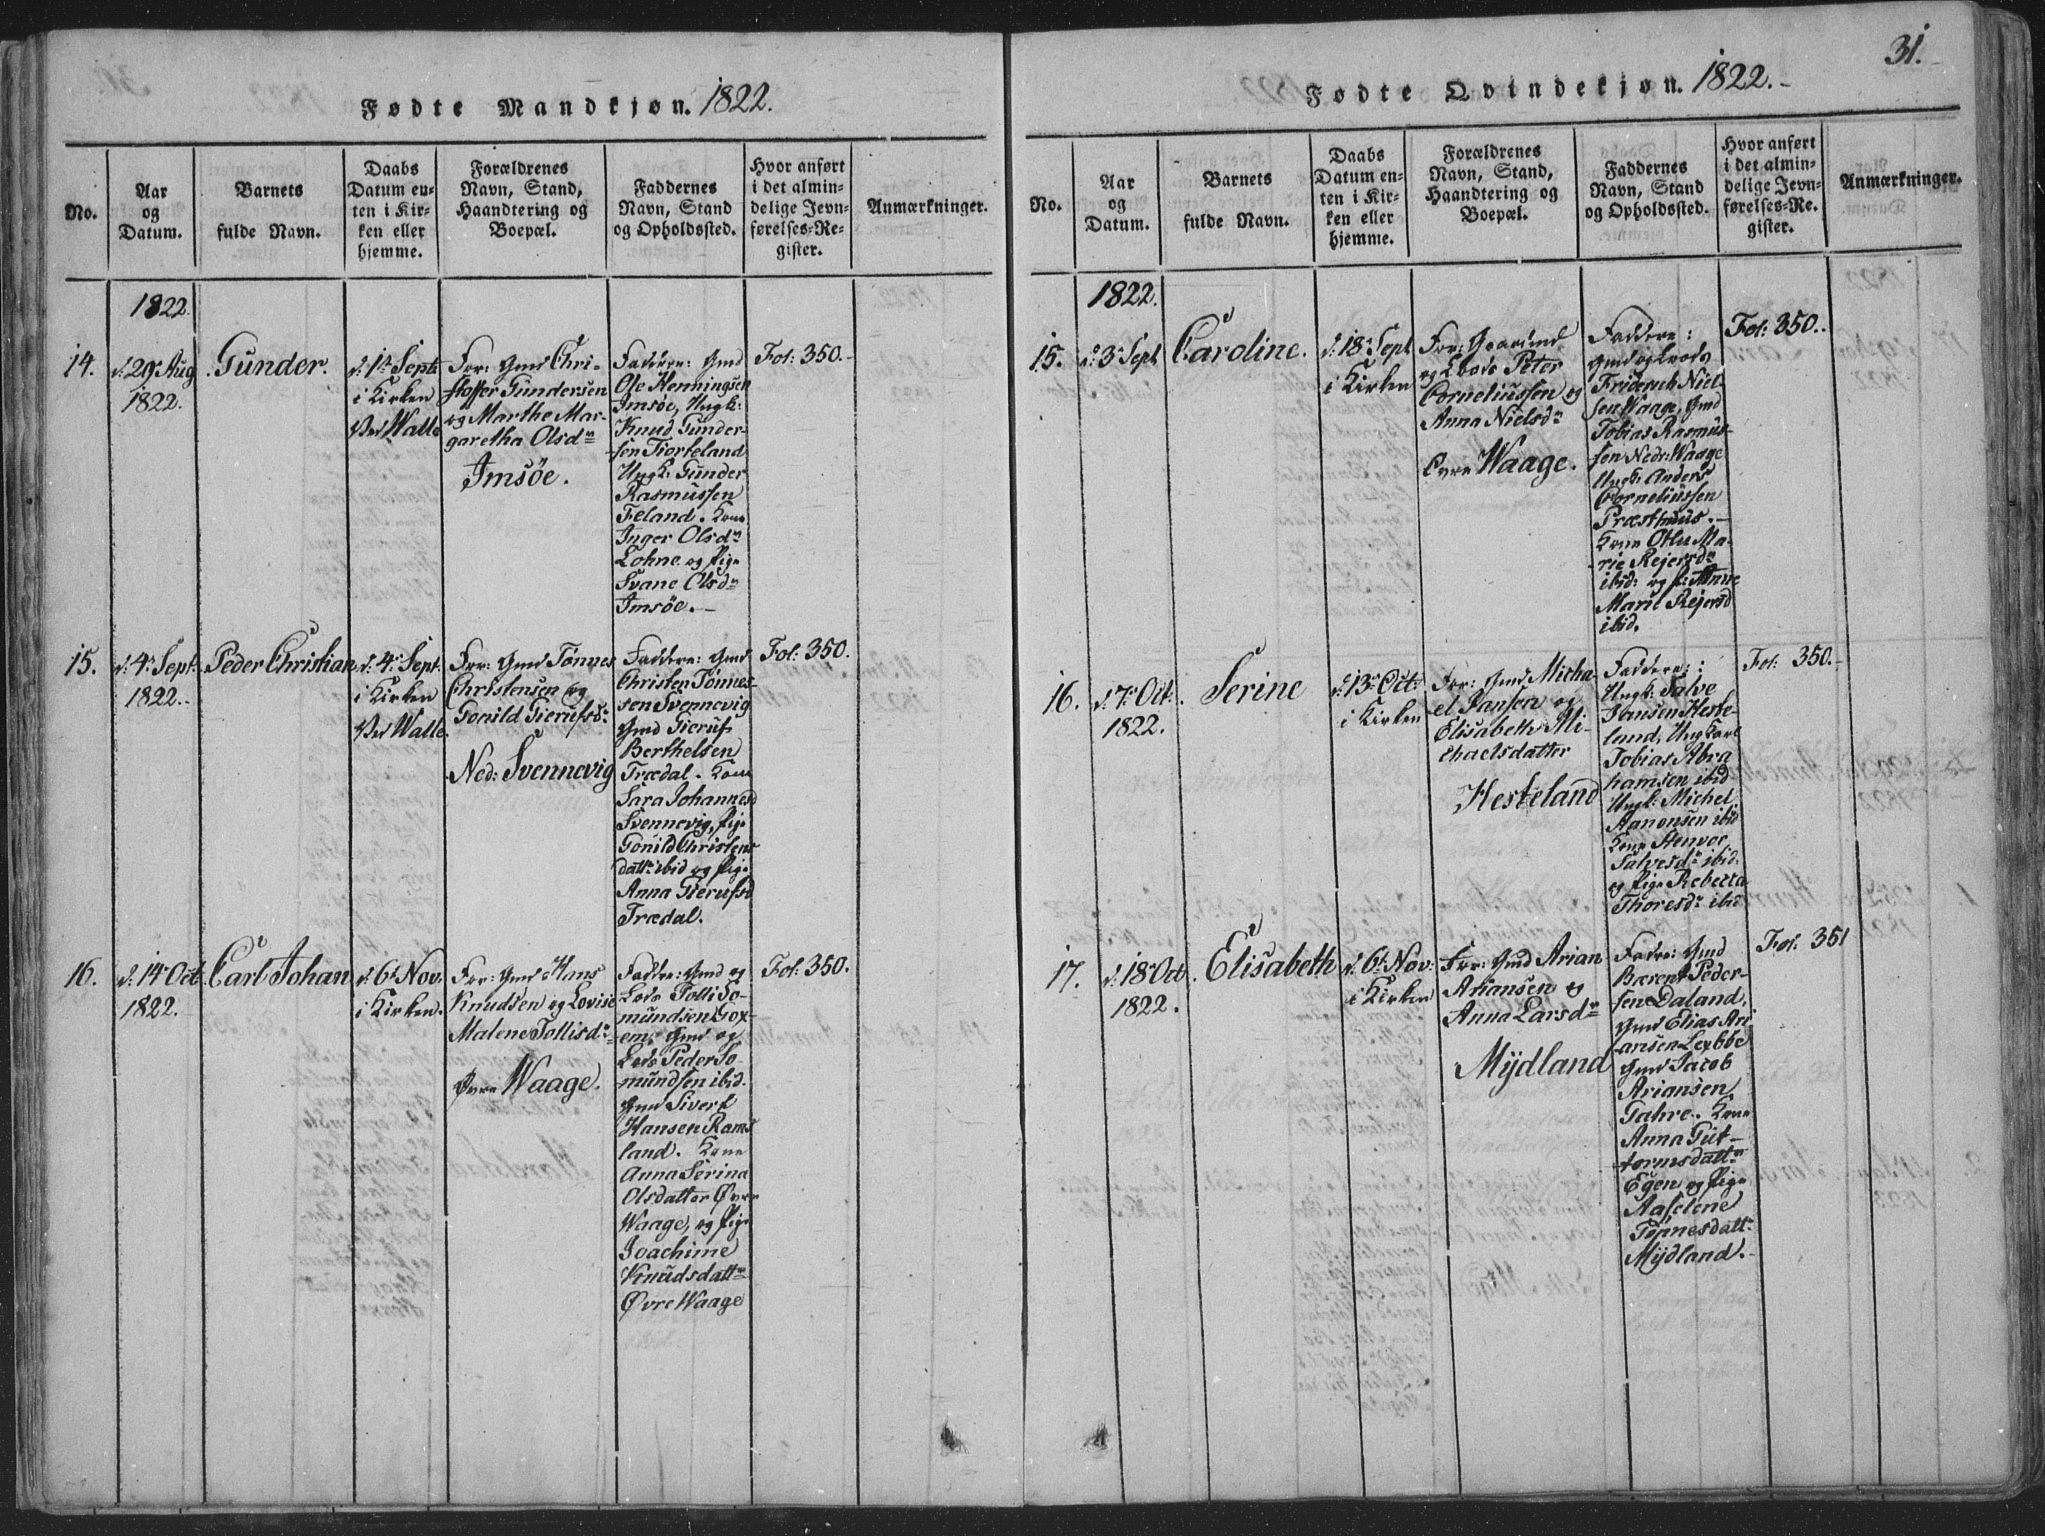 31.
Fødte Mandkjøn. 1822.
No.
Aar
og
Datum.
Barnets
fulde Navn.
Daabs
Datum en-
ten i Kir-
ken eller
hjemme.
Forældrenes
Navn, Stand,
Haandtering og
Boepæl.
Faddernes
Navn, Stand
og Opholdssted.
Hvor anført
i det almin-
delige Jevn-
førelses-Re-
gister.
Anmærkninger.
1822.
14.
d: 29 Aug
1822.
Gunder.
d: 1te Sept:
i Kirken
Ved Walle
For: Gmd Chri-
stoffer Gundersen
og Marthe Mar-
garetha Olsdn
Imsøe.
Faddere: Gmd
Ole Henningsen
Imsøe, Ungk:
Knud Gunder-
sen Fiorkeland
Ungk: Gunder
Rasmussen
Feland. Kone
Inger Olsdn
Lohne og Pige
Svane Olsdn
Imsøe.
Fol: 350.
15.
d: 4 Sept.
1822.
Peder Christian
d: 4 Sept.
i Kirken
Ved Walle.
For: Gmd Tønnes
Christensen og
Gonild Gierufsd:
Ned: Svennevig
Faddere: Gmd
Christen Tønnes-
sen Svennevig
Gmd Gieruf
Berthelsen
Trædal. Kone
Sara Johannesd
Svennevig, Pige
Gonild Christens
dattr ibid og Pige
Anna Gierufsd
Trædal.
Fol: 350.
16.
d: 14 Oct
1822.
Carl Johan
d: 6 Nov.
i Kirken.
For: Gmd Hans
Knudsen og Lovise
Malene Tollisdr
Øvre Waage.
Faddre: Gmd og
Lods Tolli So-
mundsen Gox-
em, Gmd og
Lods Peder So-
mundsen ibid.
Gmd Sivert
Hansen Rams
land. Kone
Anna Serina
Olsdatter Øvre
Waage, og Pige
Joachime
Knudsdattr
Øvre Waage
Fol: 350.
Fødte Qvindekjøn. 1822.
No.
Aar
og
Datum.
Barnets
fulde Navn.
Daabs
Datum en-
ten i Kir-
ken eller
hjemme.
Forældrenes
Navn, Stand,
Haandtering og
Boepæl.
Faddernes
Navn, Stand
og Opholdssted.
Hvor anført
i det almin-
delige Jevn-
førelses-Re-
gister.
Anmærkninger.
1822.
15.
d: 3 Sept
Caroline.
d: 18 Sept
i Kirken
For: Gaardmd
og Lods Peter
Corneliussen og
Anna Nielsdn
Øvre Waage.
Faddere:
Gmd og Lods
Friderich Niel-
sen Waage, Gmd
Tobias Rasmus-
sen Nedr: Waage
Ungk: Anders
Corneliussen
Præsthuus.
Kone Othe Ma-
rie Rejersdn
ibid: og P: Anne
Marie Rejersd
ibid.
Fol: 350.
16.
d: 7 Oct.
1822.
Serine
d: 13 Oct:
i Kirken
For: Gmd Micha-
el Jansen og
Elisabeth Mi-
chaelsdatter
Hesteland
Faddere:
Ungk: Salve
Jansen Heste-
land, Ungkarl
Tobias Abra
hamsen ibid
Ungk: Michel
Aanonsen ibid
Kone Stenvor
Salvesdn ibid.
og Pige Rebecca
Thoresdn ibid
Fol: 350.
17.
d: 18 Oct
1822.
Elisabeth
d: 6 Nov:
i Kirken
For: Gmd Arian
Ariansen og
Anna Larsdn
Mÿdland
Fadre: Gmd
Barent Peder-
sen Daland,
Gmd Elias Ari
ansen
Gmd Jacob
Ariansen
Gahre. Kone
Anna Gut-
tormsdattr
Egen og Pige
Aaselene
Tønnesdattr
Mÿdland.
Fol: 351